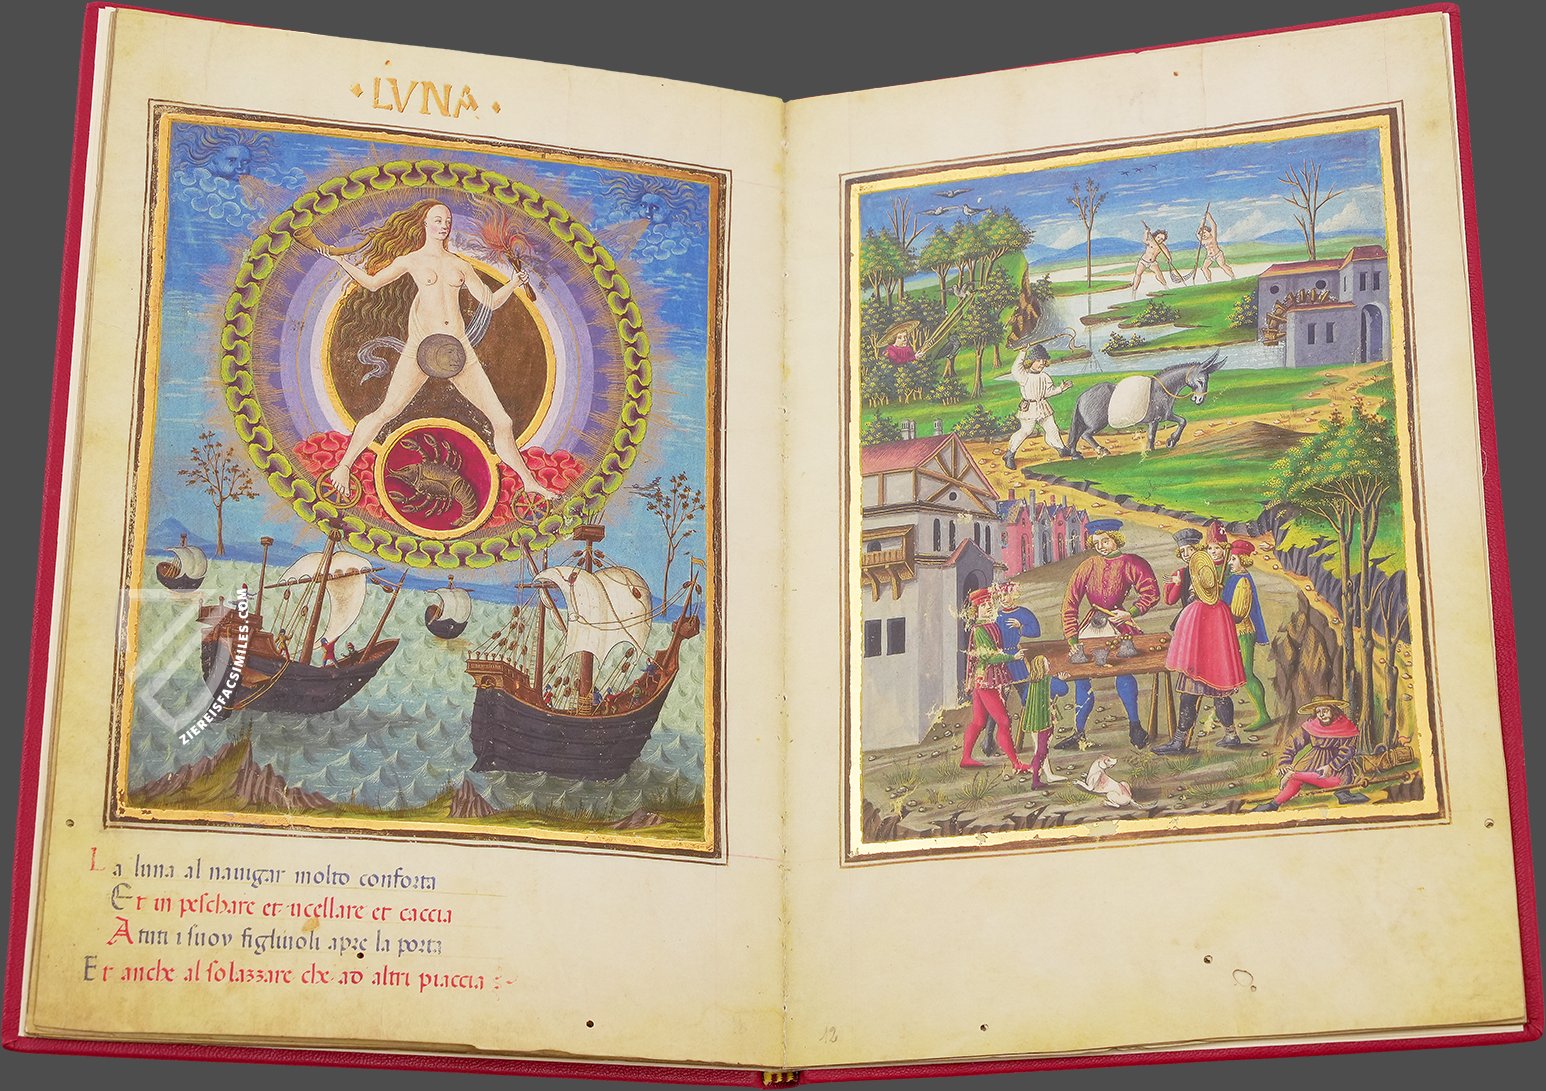 · LVNA ·
La luna al nauigar molto conforta
Et in peschare et ucellare et caccia
A tuti i suoy figliuoli apre la porta
Et anche al solazzare che ad altri piaccia
12
ZIEREISFACSIMILES.COM